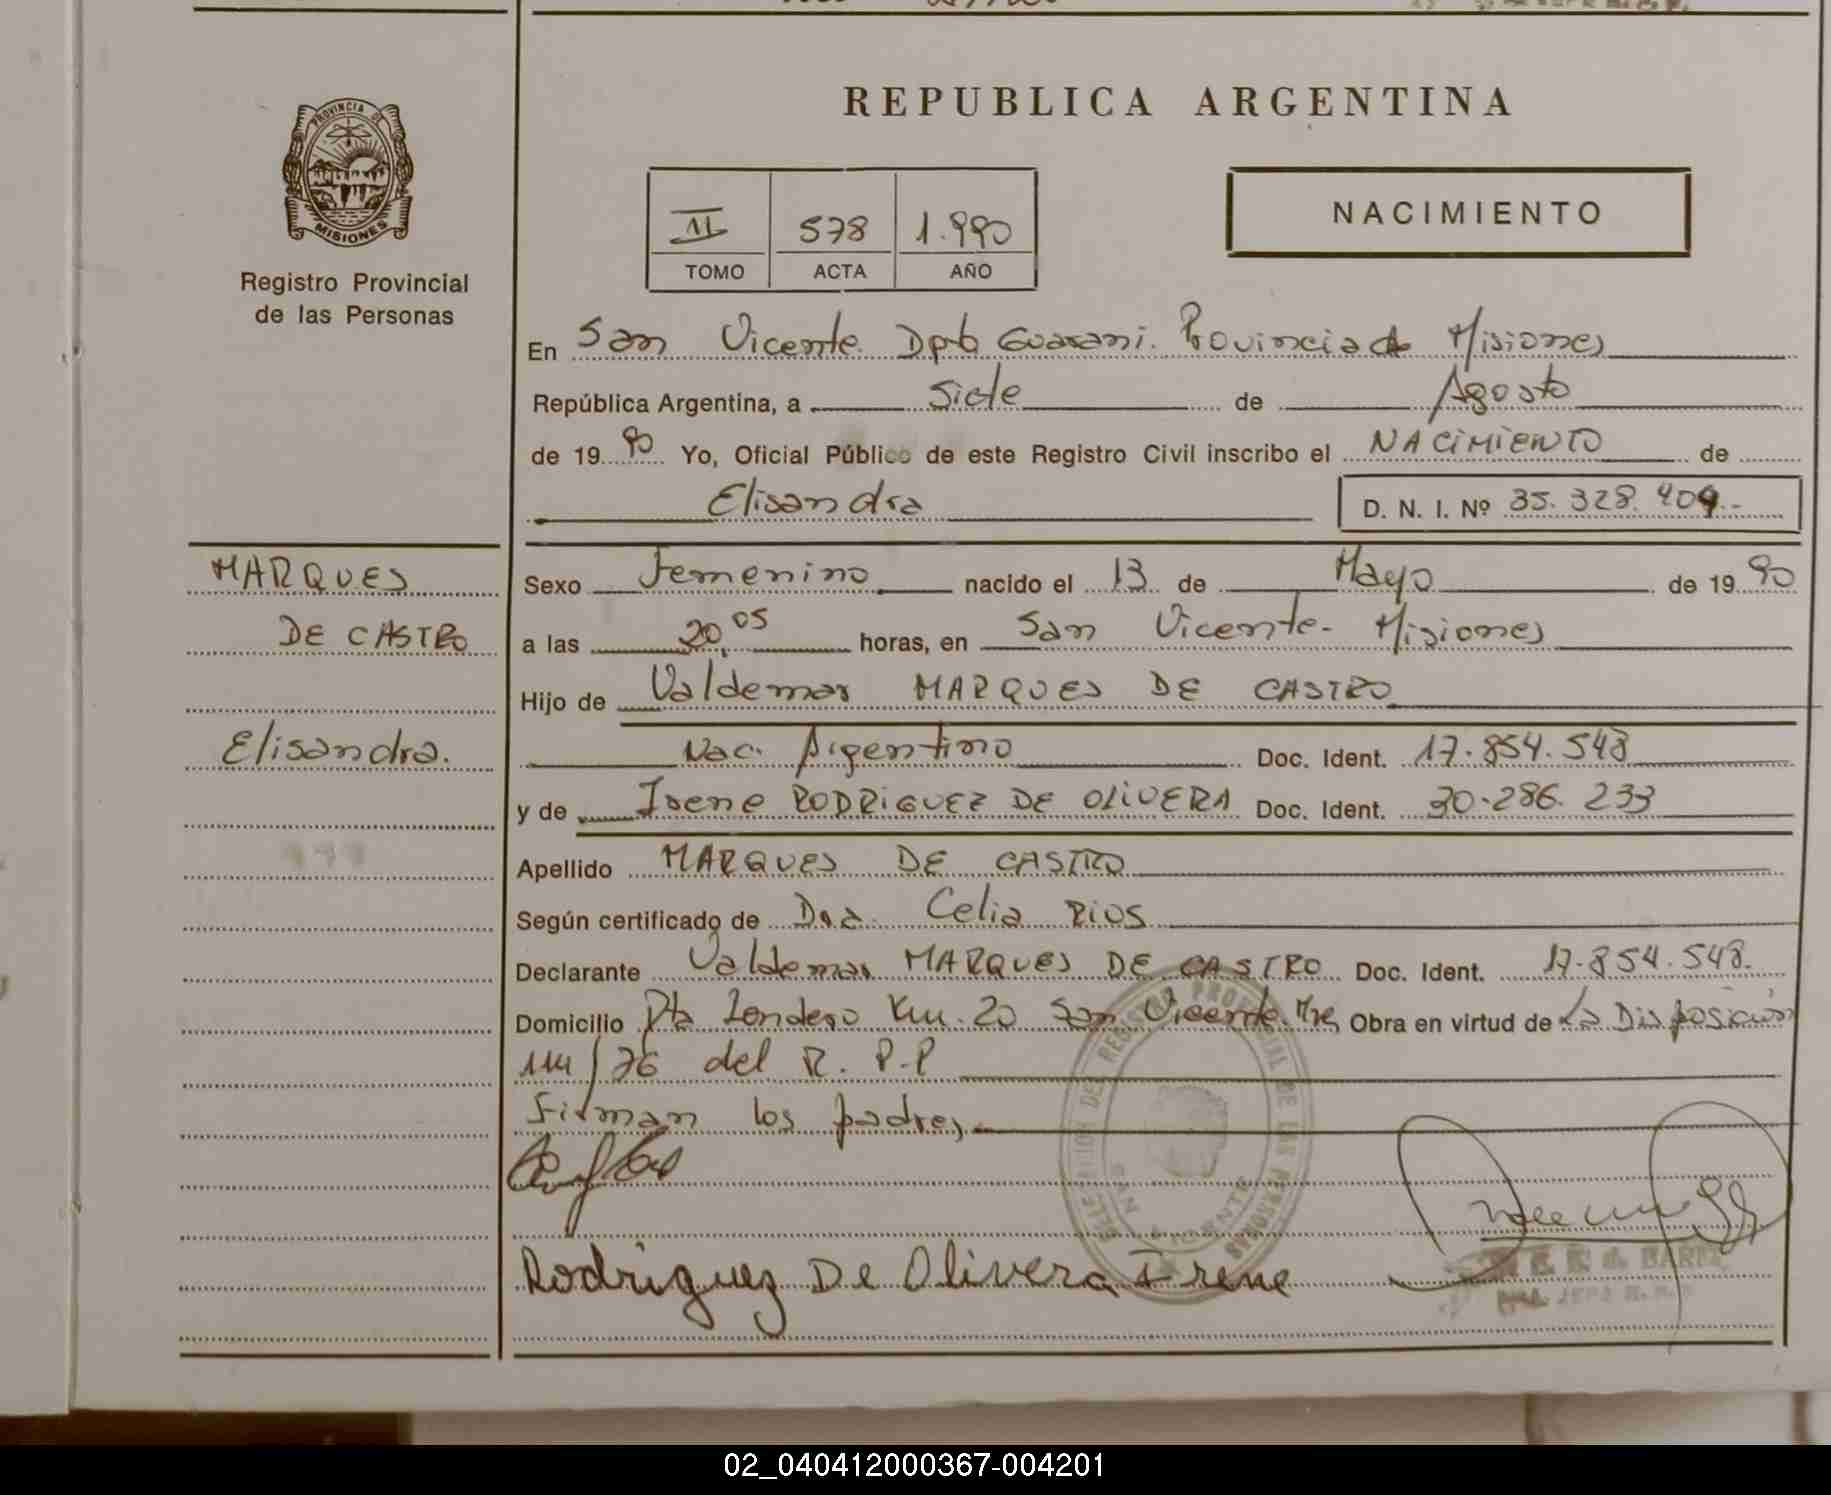 REPUBLICA ARGENTINA
PROVINCIA DE
MISIONES
Registro Provincial
de las Personas
II 578 1.990
TOMO ACTA AÑO
NACIMIENTO
En San Vicente Dpto Guarani. Provincia de Misiones
República Argentina, a Siete de Agosto
de 19 90 Yo, Oficial Público de este Registro Civil inscribo el NACIMIENTO de
Elisandra D. N. I. Nº 35. 328. 409.-
MARQUES
DE CASTRO
Elisandra.
Sexo Femenino nacido el 13 de Mayo de 19 90
a las 20,05 horas, en San Vicente- Misiones
Hijo de Valdemar MARQUES DE CASTRO
Nac. Argentino Doc. Ident. 17.854.548
y de Irene RODRIGUEZ DE OLIVERA Doc. Ident. 30.286. 233
Apellido MARQUES DE CASTRO
Según certificado de Dra. Celia RIOS
Declarante Valdemar MARQUES DE CASTRO Doc. Ident. 17.854.548.
Domicilio Pta Londero Km. 20 San Vicente. Mnes Obra en virtud de La Disposición
114/76 del R. P.P
Firman los padres
DELEGACION DEL REGISTRO PROVINCIAL DE LAS PERSONAS
SAN VICENTE
Rodriguez De Olivera Irene
02_040412000367-004201